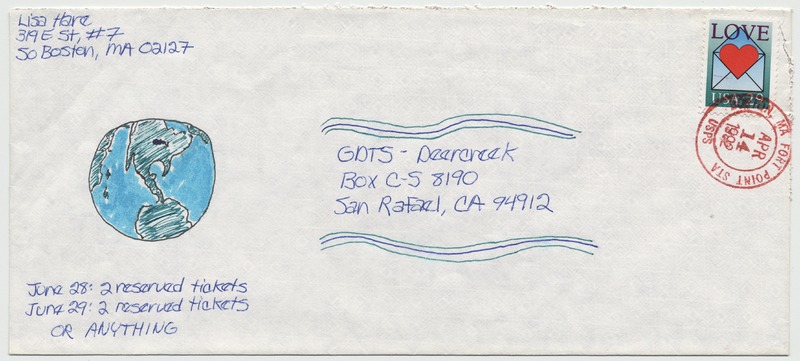 Lisa Hare
319 E St, #7
So Boston, MA 02127
LOVE
USA 29
MA FORT POINT STA
APR
14
1992
USPS
GDTS - Deercreek
Box C-S 8190
San Rafael, CA 94912
June 28: 2 reserved tickets
June 29: 2 reserved tickets
OR ANYTHING